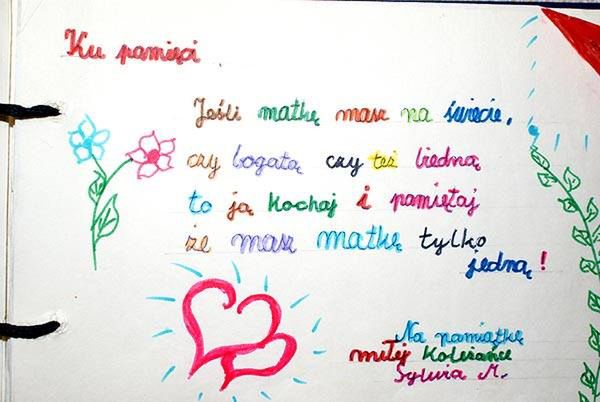 Ku pamięci
Jeśli matkę masz na świecie,
czy bogatą czy też biedną
to ją kochaj i pamiętaj
że masz matkę tylko
jedną!
Na pamiątkę
miłej Koleżance
Sylwia M.